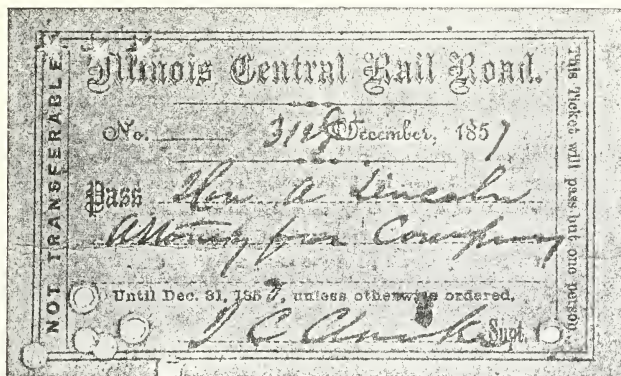 NOT TRANSFERABLE.
Illinois Central Rail Road.
No. 31st December, 1857
Pass Hon A Lincoln
Attorney for Company
Until Dec. 31, 1857, unless otherwise ordered.
Supt.
This Ticket will pass but one person.